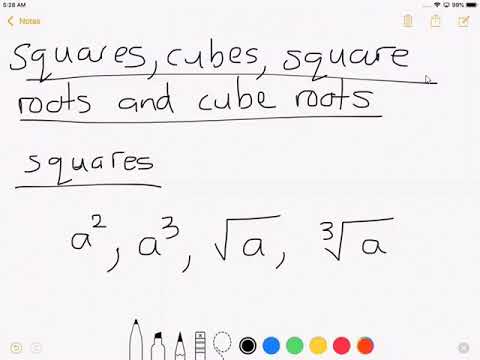 5:28 AM
99%
Notes
squares, cubes, square
roots and cube roots
squares
a², a³, √a, ³√a